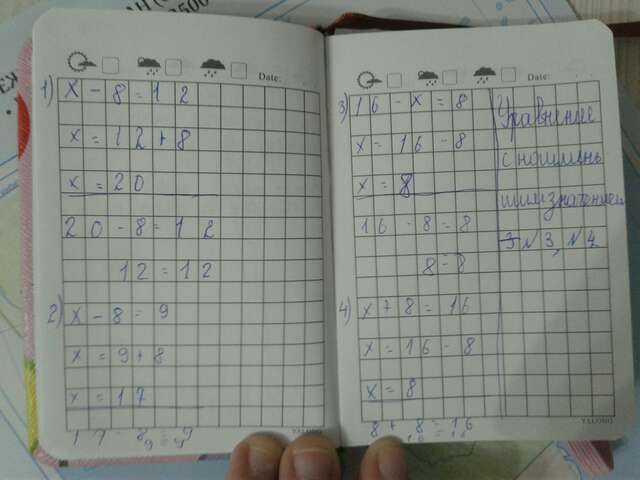 Date:
1) x - 8 = 12
x = 12 + 8
x = 20
20 - 8 = 12
12 = 12
2) x - 8 = 9
x = 9 + 8
x = 17
17 - 8 = 9
9 = 9
YALONG
Date:
3) 16 - x = 8
x = 16 - 8
x = 8
16 - 8 = 8
8 = 8
4) x + 8 = 16
x = 16 - 8
x = 8
8 + 8 = 16
16 = 16
YALONG
Уравнение
с наимень
шим значением
№3, №4